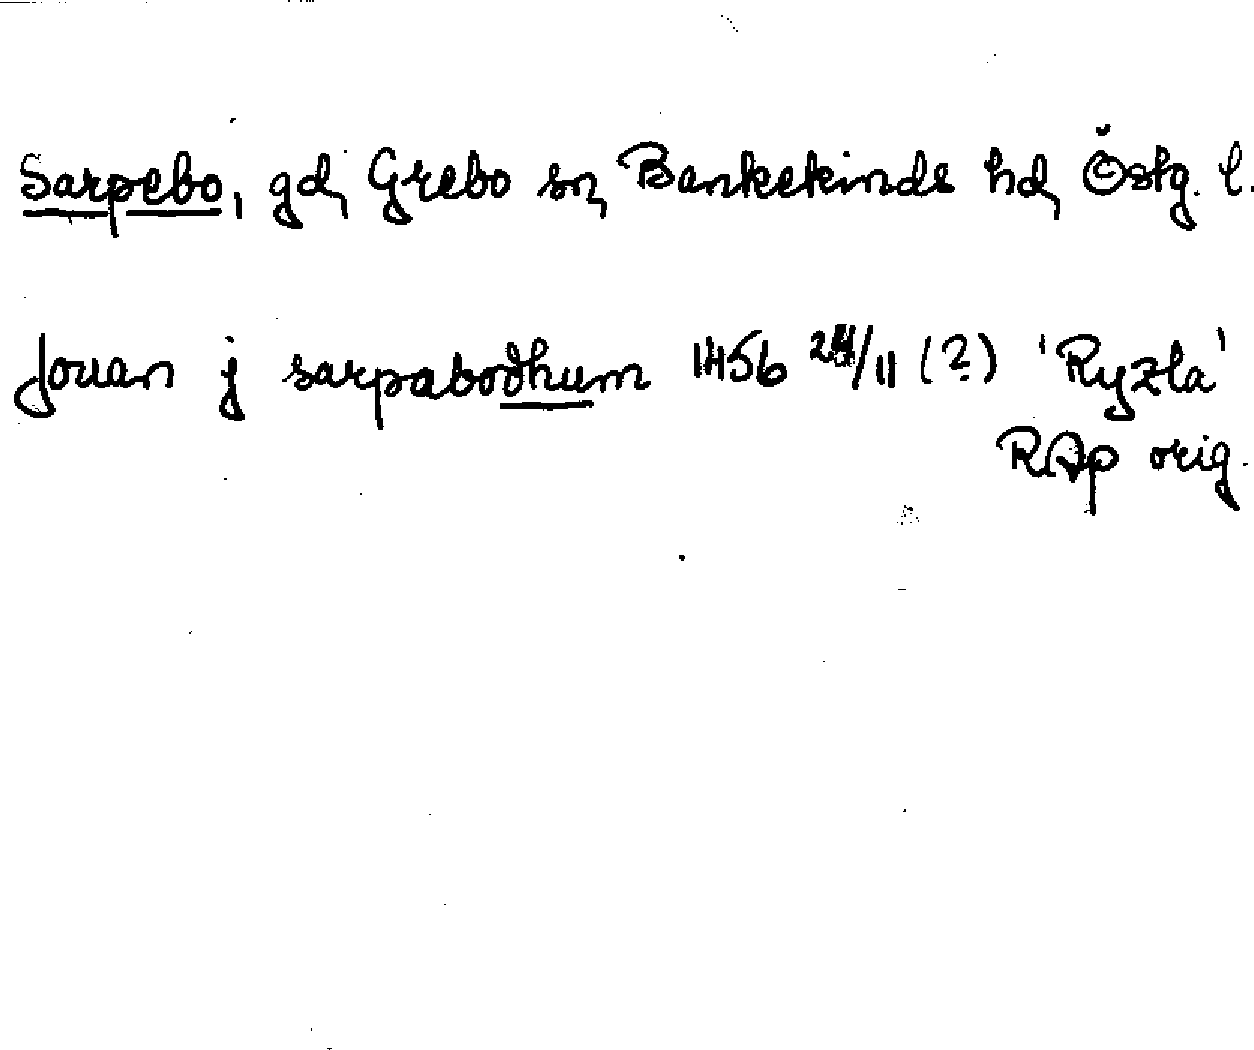 Sarpebo, gd, Grebo sn, Bankekinds hd, Östg. l.
Jouan j sarpabodhum 1456 24/11 (?) 'Ryzla'
RAp orig.